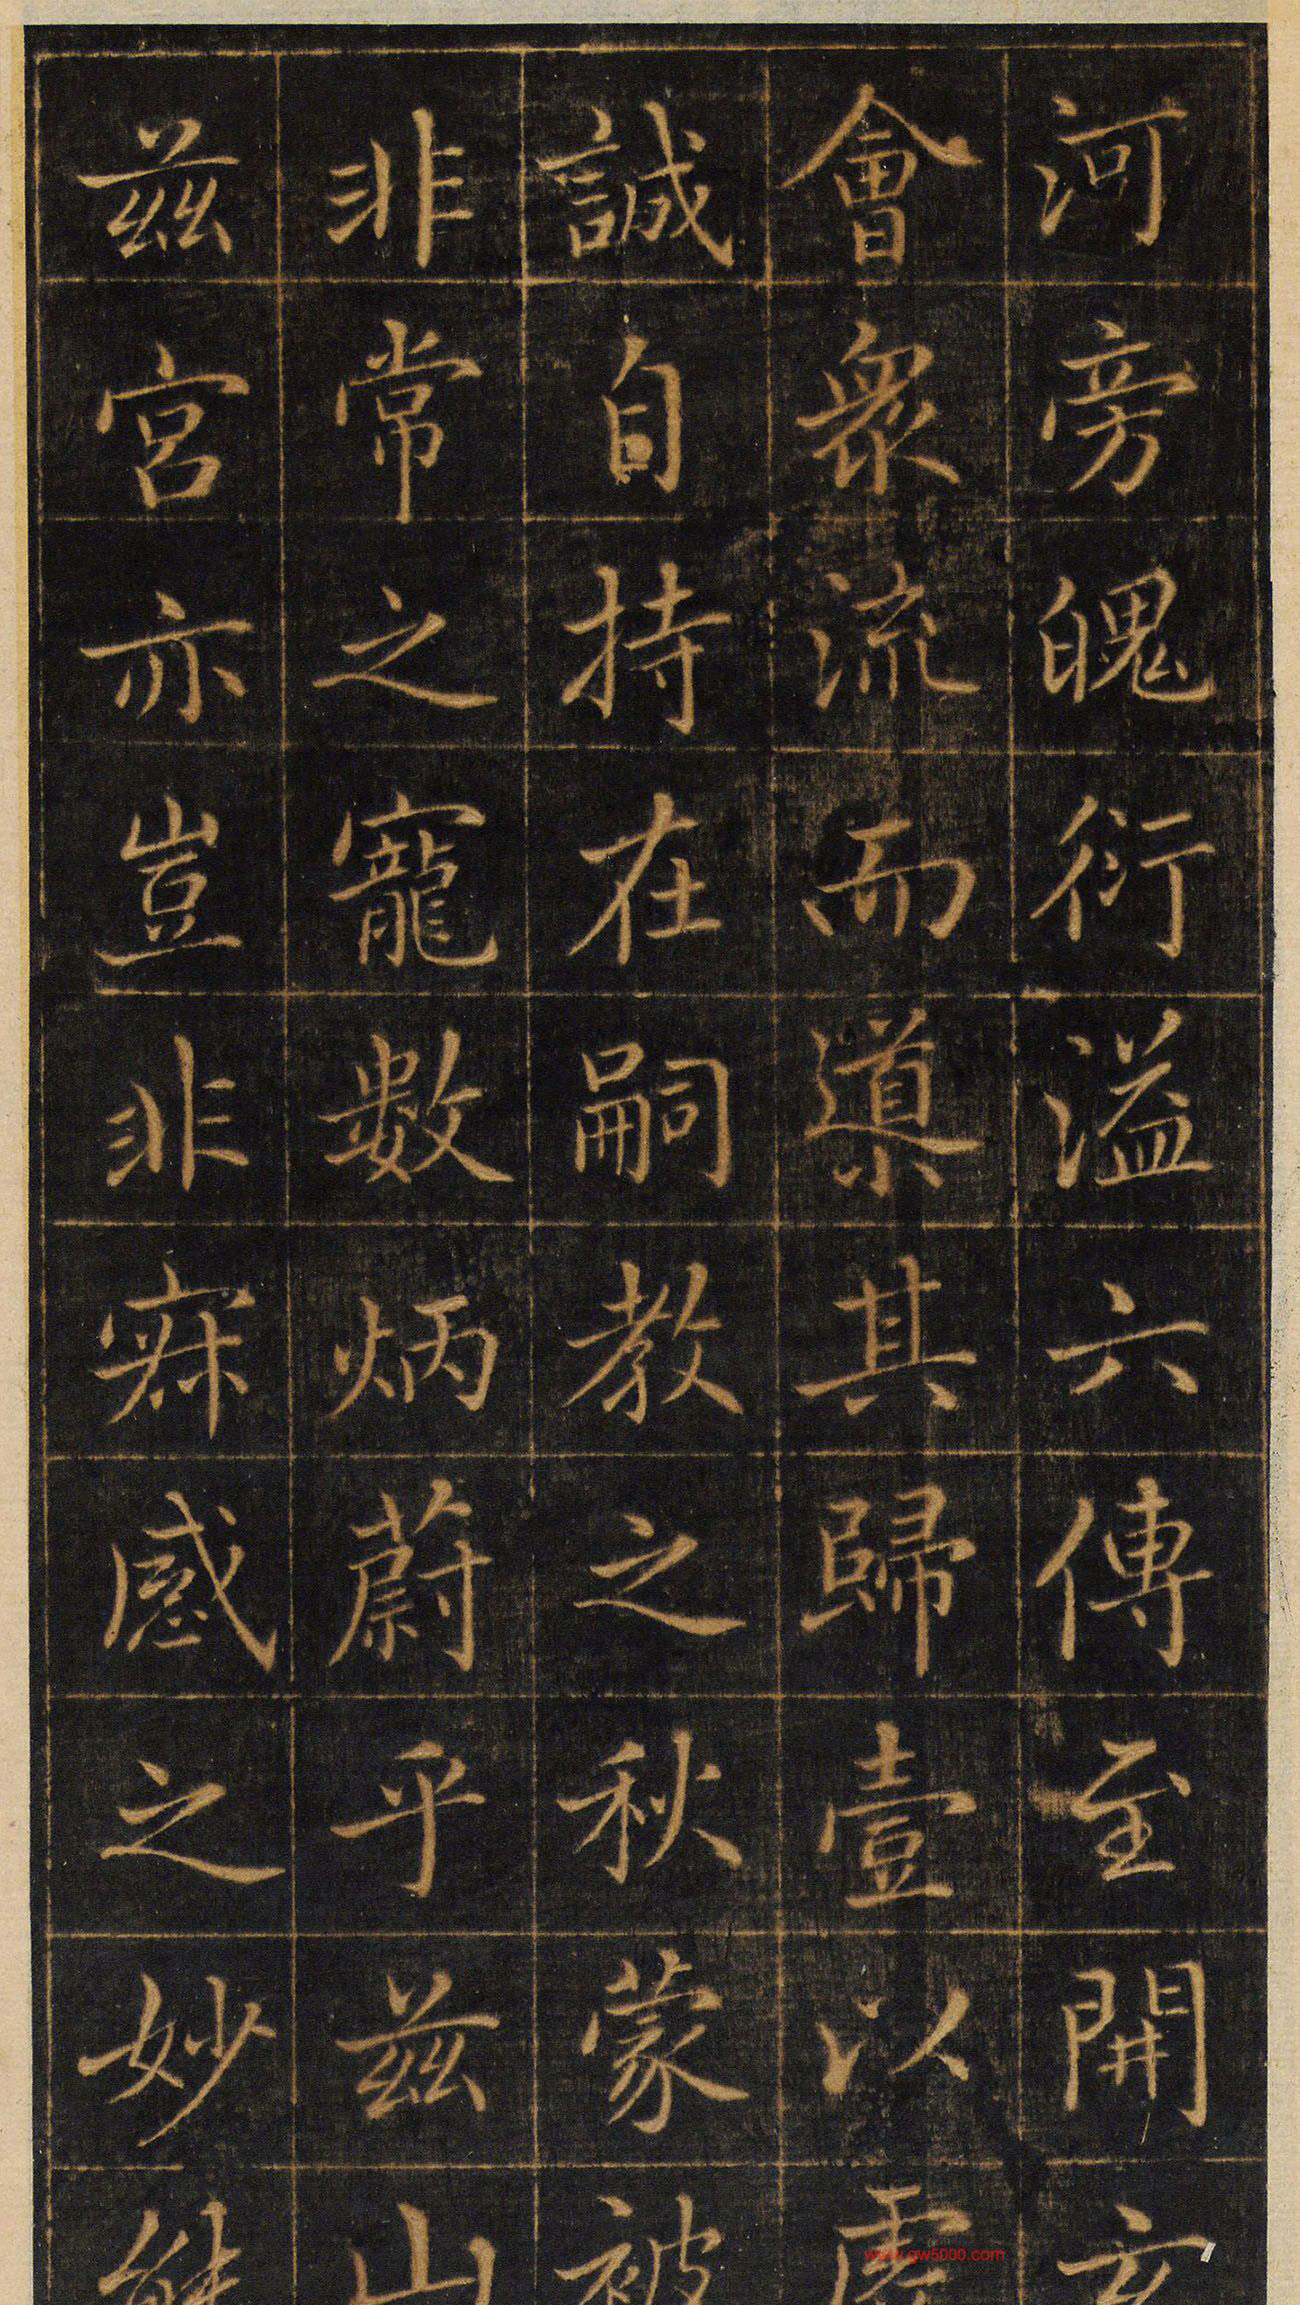 河旁魄衍溢六傳至開玄
會衆流而導其歸壹以虛
誠自持在嗣教之秋蒙被
非常之寵數炳蔚乎兹山
兹宮亦豈非寂感之妙
www.gw5000.com